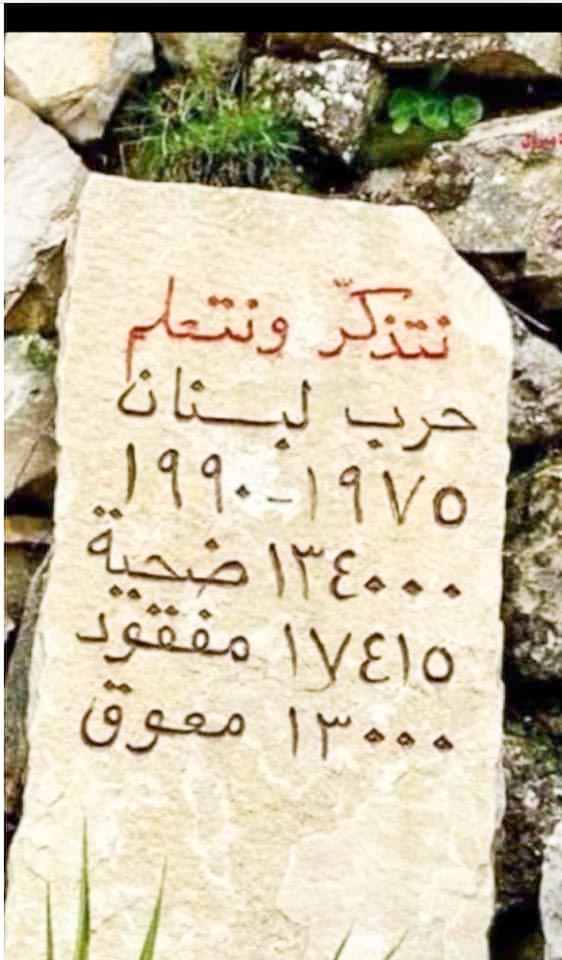 نتذكّر ونتعلم
حرب لبنان
١٩٧٥-١٩٩٠
١٣٤٠٠٠ ضحية
١٧٤١٥ مفقود
١٣٠٠٠ معوق